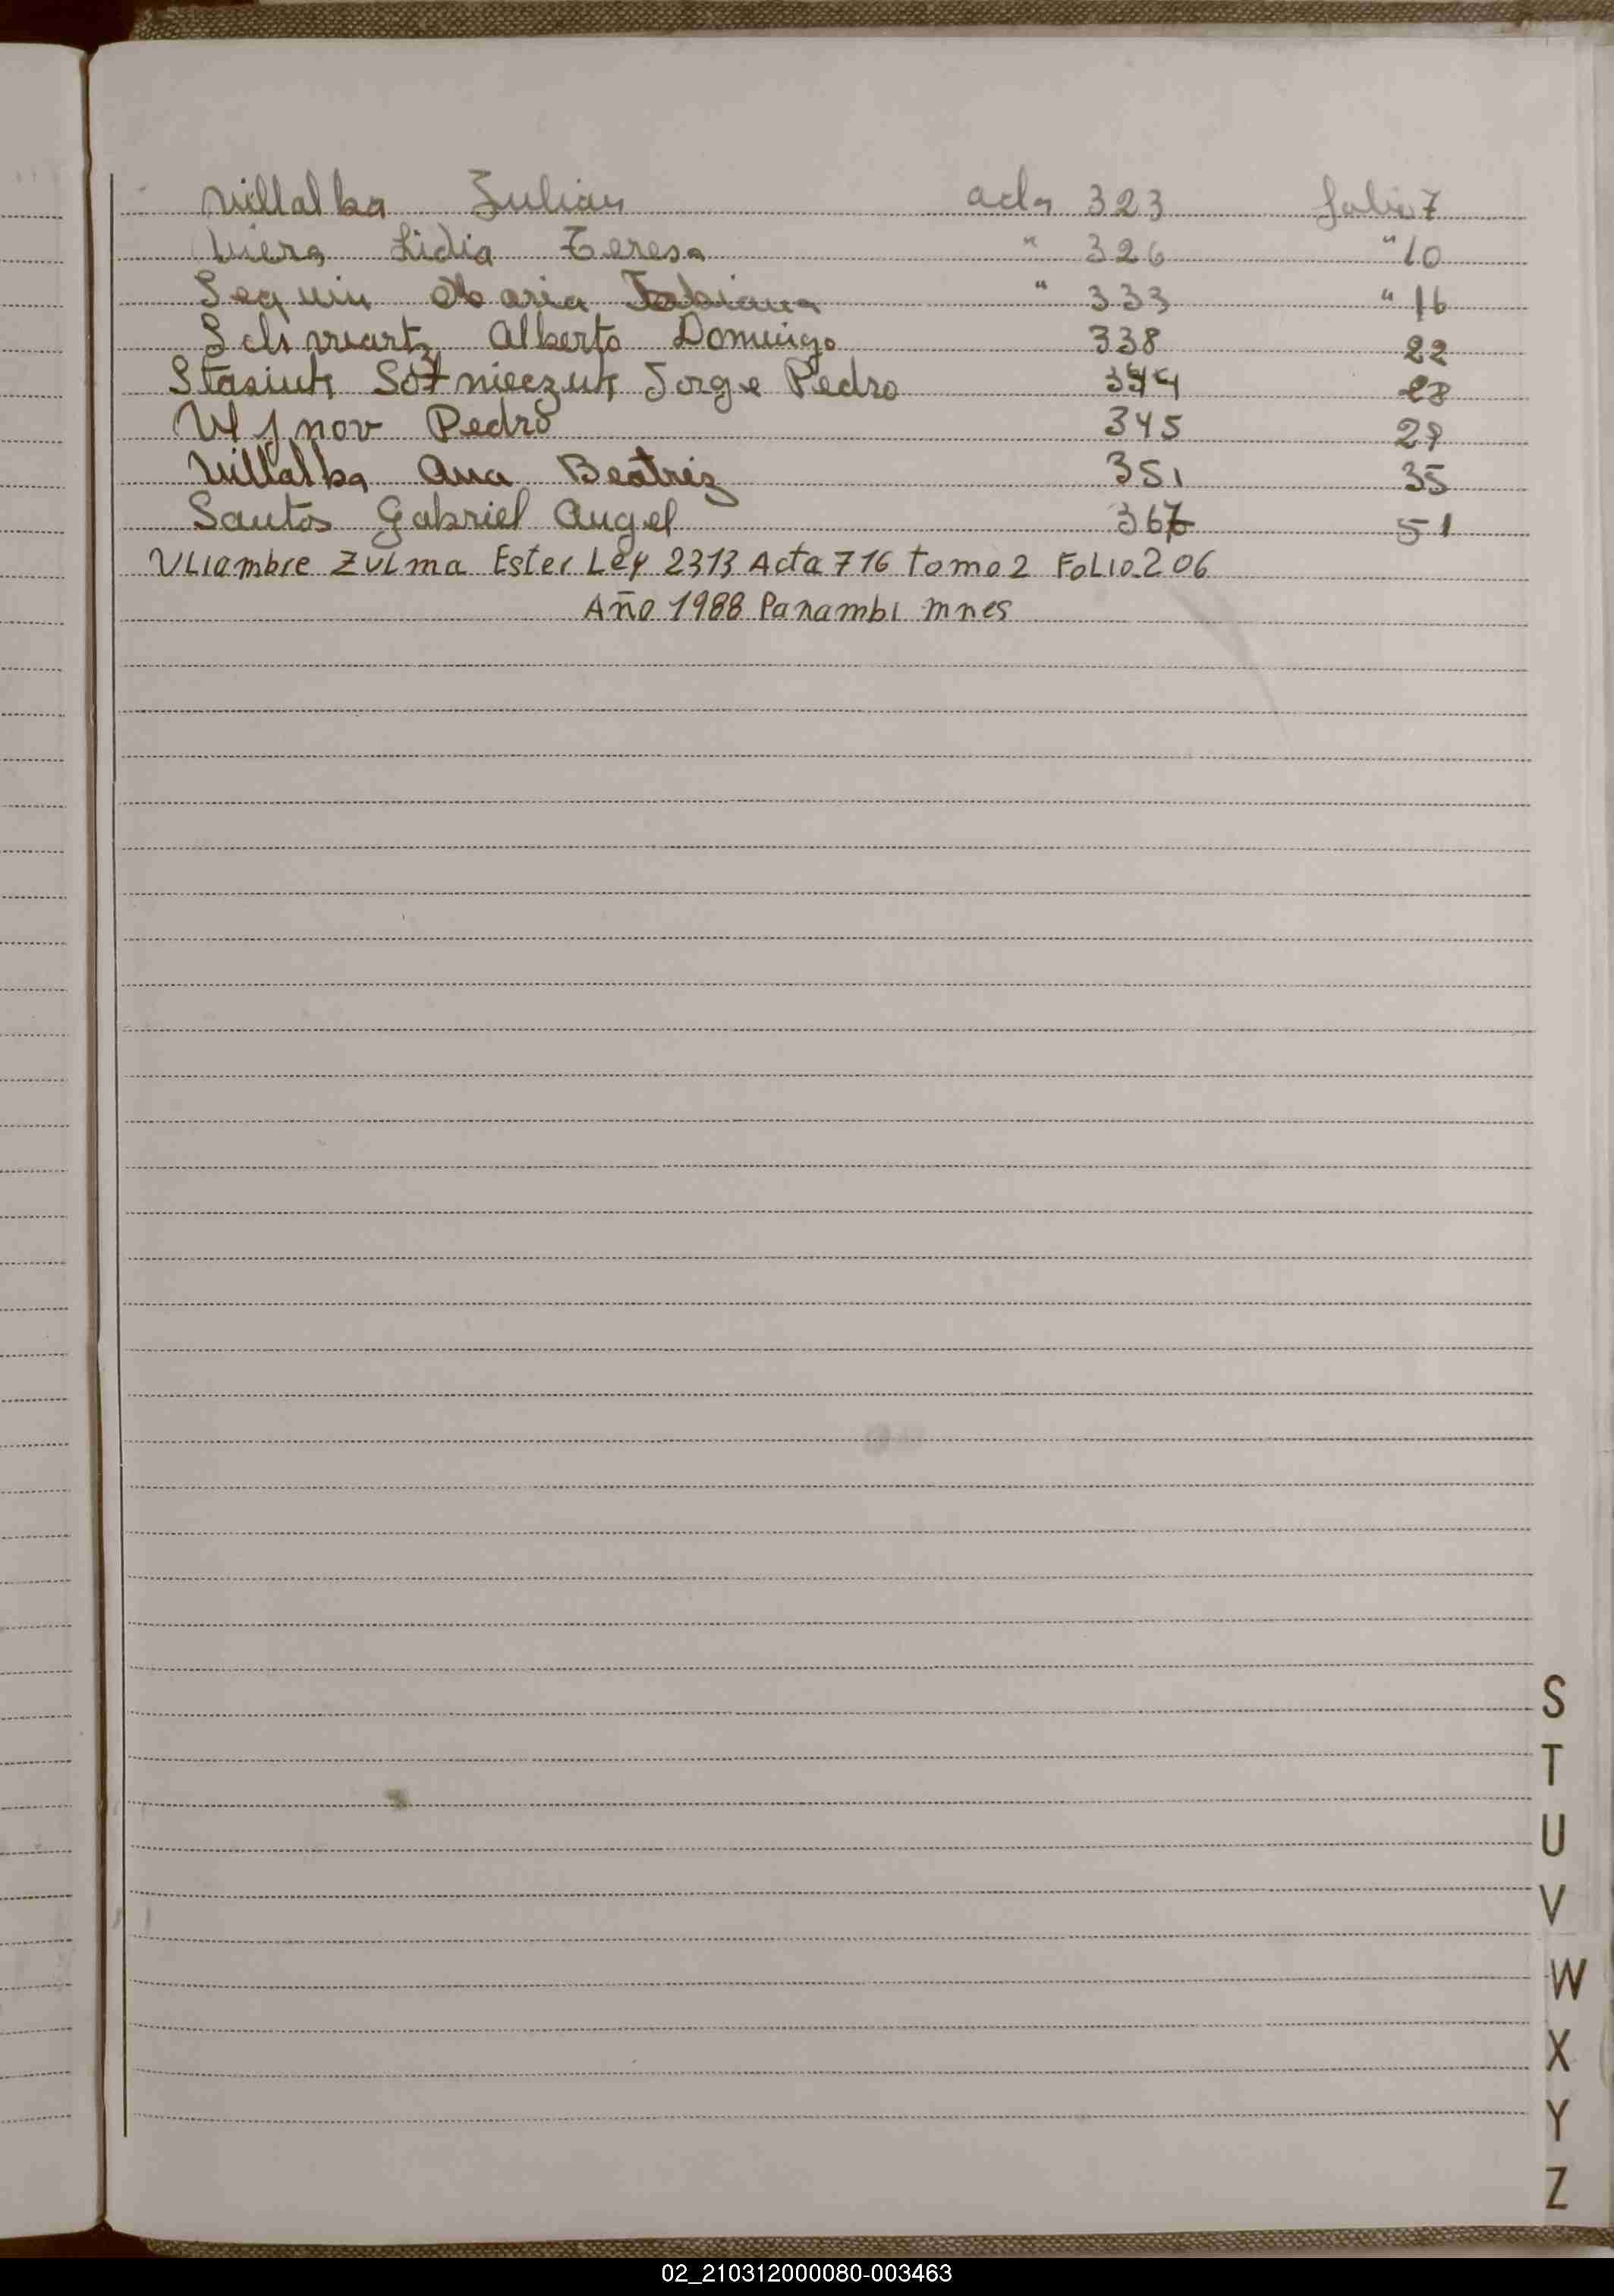 Villalba Julian acta 323 folio 7
Viera Lidia Teresa " 326 " 10
Sequin Maria Fabiana " 333 " 16
Schwartz Alberto Domingo 338 22
Stasiuk Sotnieczuk Jorge Pedro 344 28
Pedro 345 29
Villalba Ana Beatriz 351 35
Santos Gabriel Angel 367 51
Vliambre Zulma Ester Ley 2313 Acta 716 tomo 2 Folio 206
Año 1988 Panambi mnes
S
T
U
V
W
X
Y
Z
02_210312000080-003463